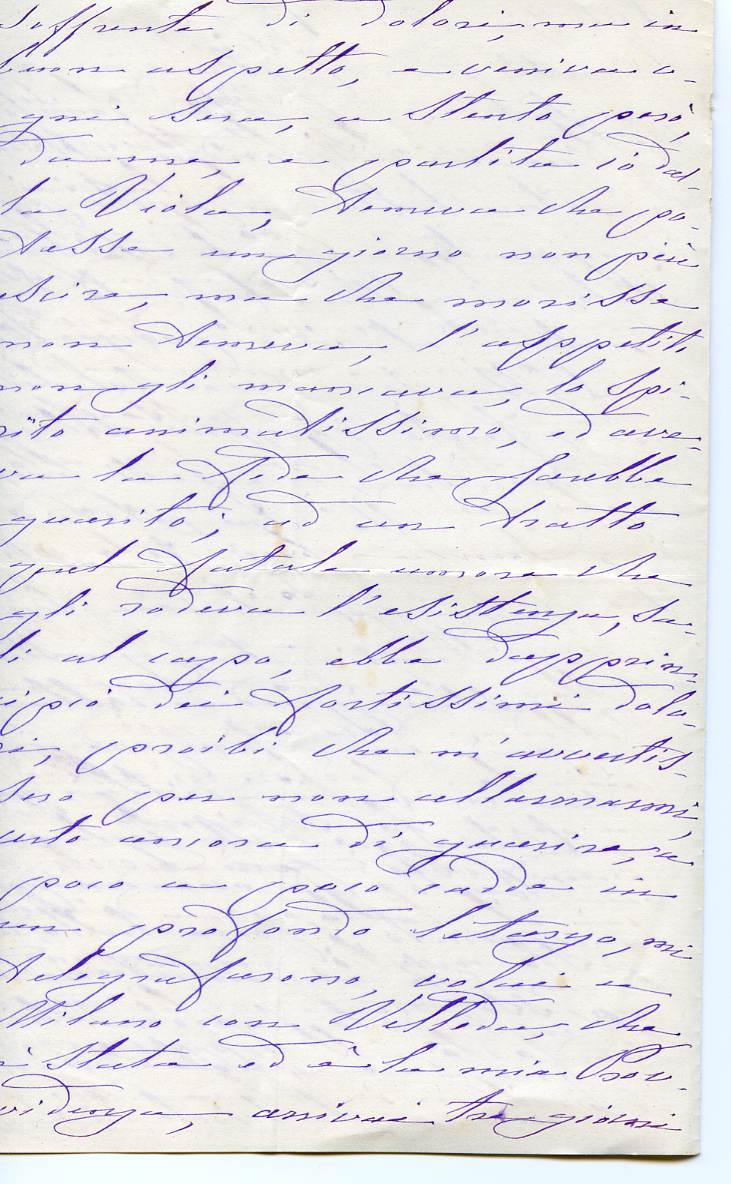 soffrente di dolori, ma in
buon aspetto, e veniva o-
gni sera, a stento però,
da me, e partita io dal-
la Viola, temeva che po-
tesse un giorno non più
escire, ma che morisse
non temeva, l'appetito
non gli mancava, lo spi-
rito animatissimo, ed ave-
va la fede che sarebbe
guarito; ad un tratto
quel fatale umore che
gli rodeva l'esistenza, sa-
lì al capo, ebbe dapprin-
cipio dei fortissimi dolo-
ri, proibì che m'avvertis-
sero per non allarmarmi,
certo ancora di guarire, a
poco a poco cadde in
un profondo letargo, mi
telegrafarono, volai a
Milano con Velleda, che
è stata ed è la mia Prov-
videnza, arrivai tre giorni